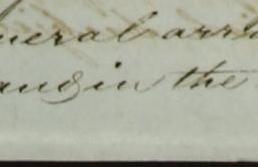 neral arri
and in the